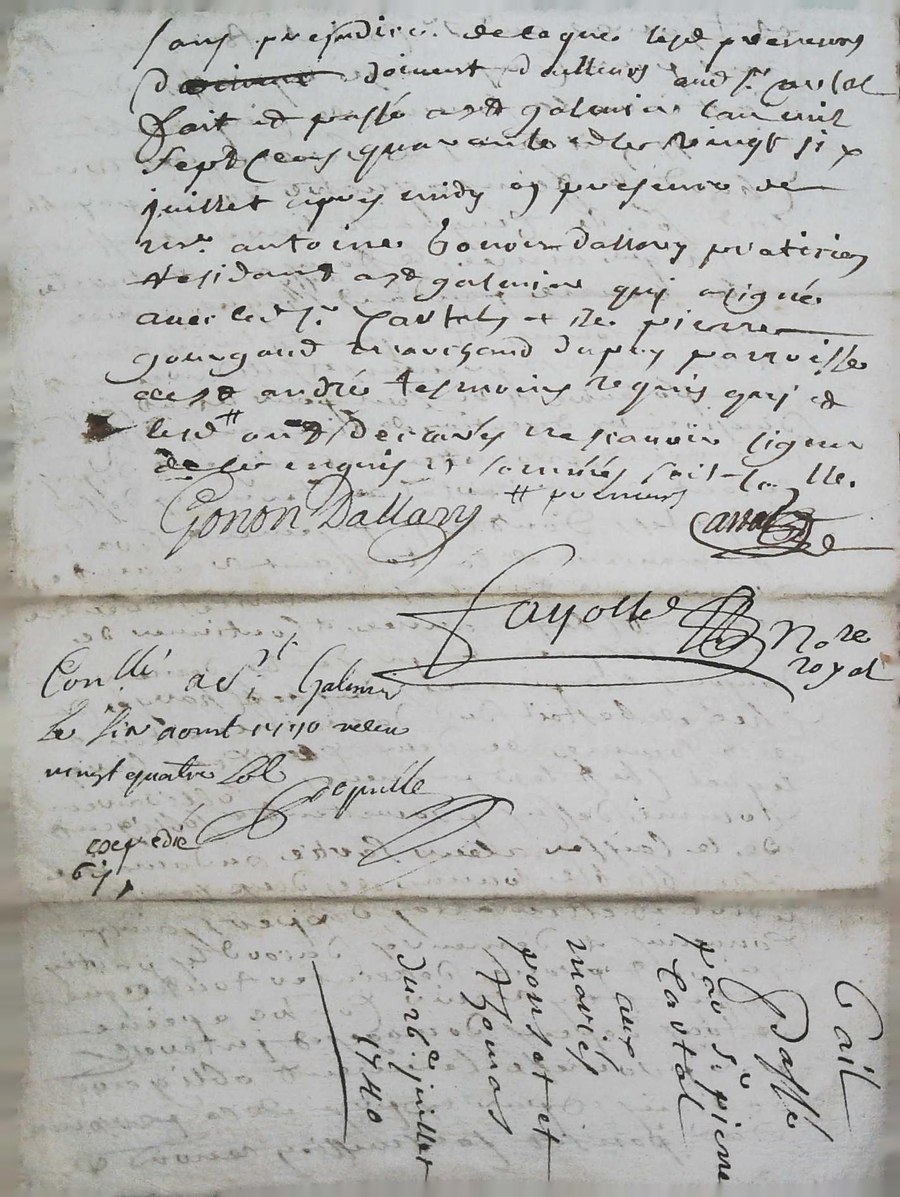 sans prejudice de ce que lesd preneurs
doivent d'ailleurs aud sr. Cartal
fait et passé a st galmier l'an mil
sept cens quarante et le vingt six
juillet apres midy en presence de
mr. antoine Gonon Dallary praticien
residant a st galmier qui a signé
avec led sr. Cartal et sr. pierre
gourgaud marchand du parroisse
de st andré tesmoins requis qui et
lesd # ont declarés ne scavoir signer
de ce enquis et sommés soit la lle.
# preneurs
Gonon Dallary
Cartal
Fayolle Nore
royal
Conllé a St Galmier
Le six aoust 1740 receu
vingt quatre sols
Depuille
expedié
Bail
Passé
par sr. pierre
Cartal
aux
mariés
ponset et
thomas
du 26e juillet
1740